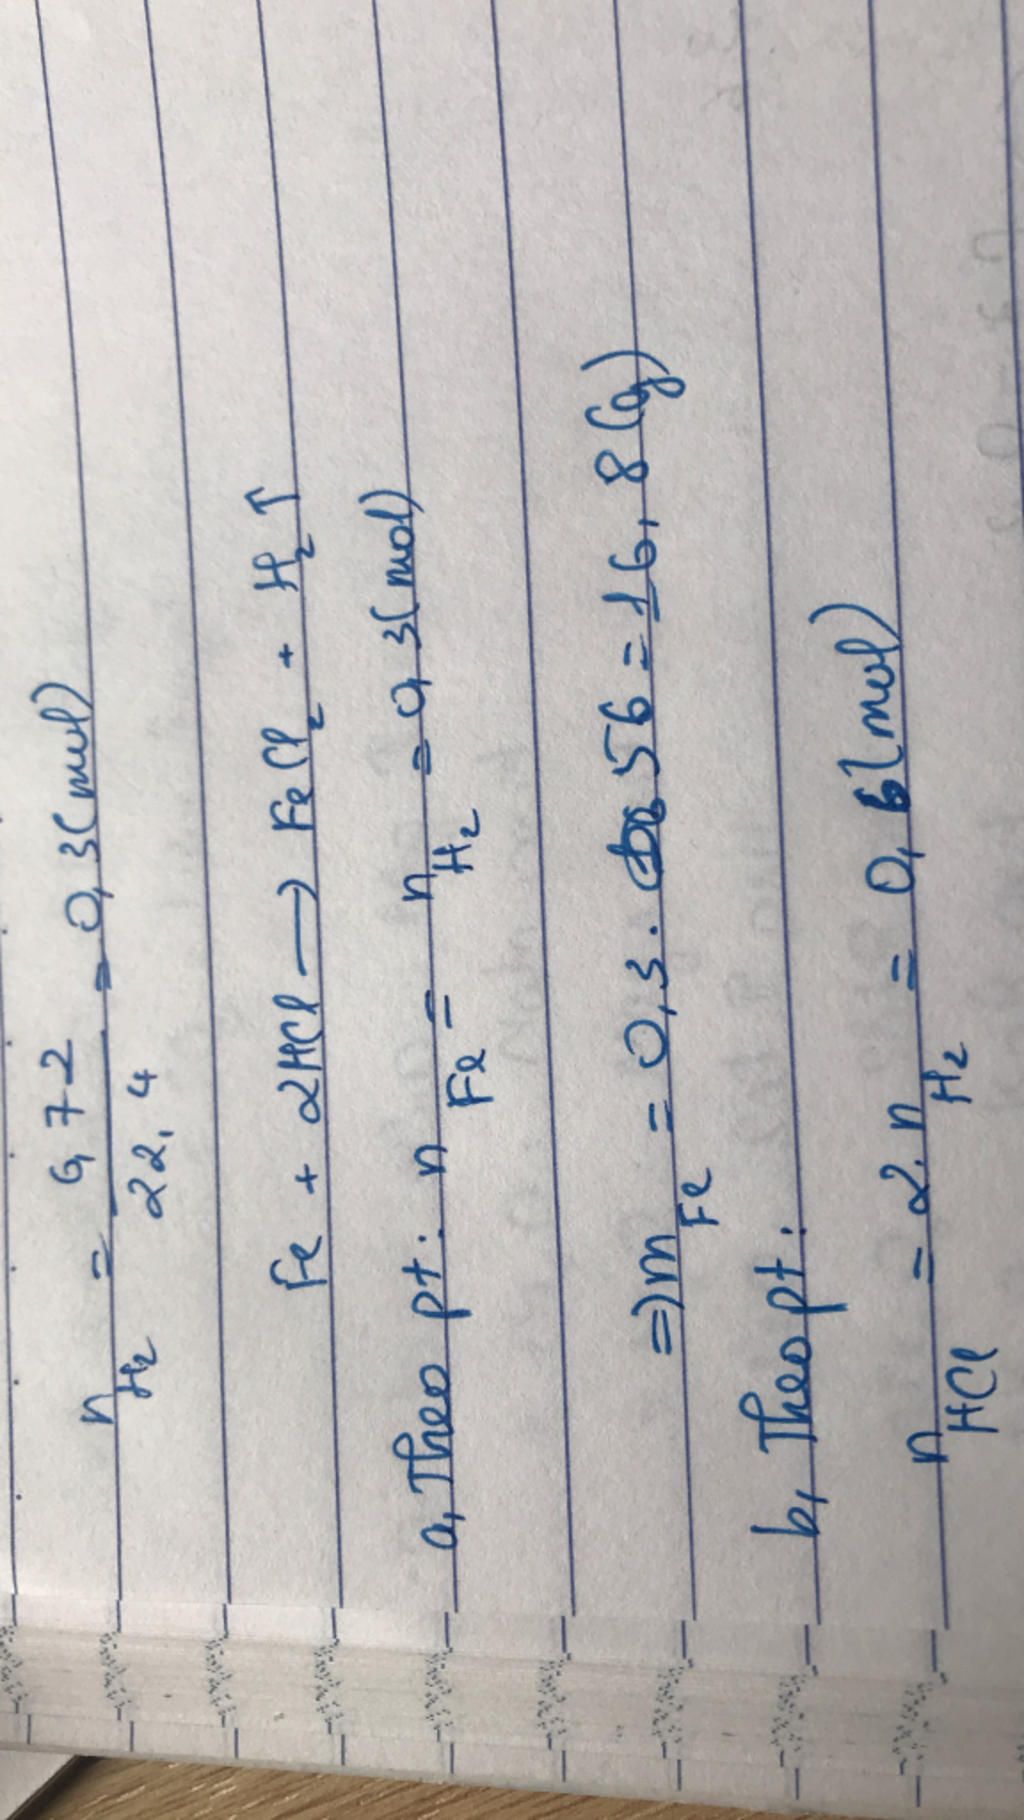 n H₂ = 6,72 / 22,4 = 0,3 (mol)
Fe + 2HCl → FeCl₂ + H₂ ↑
a, Theo pt: n Fe = n H₂ = 0,3 (mol)
=> m Fe = 0,3 . 56 = 16,8 (g)
b, Theo pt:
n HCl = 2. n H₂ = 0,6 (mol)